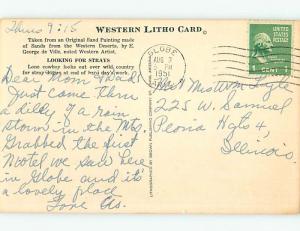 Thurs 9:15
WESTERN LITHO CARD
Taken from an Original Sand Painting made
of Sands from the Western Deserts, by E.
George de Ville, Noted Western Artist.
LOOKING FOR STRAYS
Lone cowboy looks out over wild country
for stray doggies at end of hard day's work.
Dear Mom & Dad:
Just came thru
a dilly of a rain
storm in the Mts.
Grabbed the first
Motel we saw here
in Globe and it's
a lovely place
Love Us.
GLOBE
AUG 2
PM
1951
1 CENT 1
Mr & Mrs Wm
225 W. Samuel
Peoria Hgts 4,
Illinois.